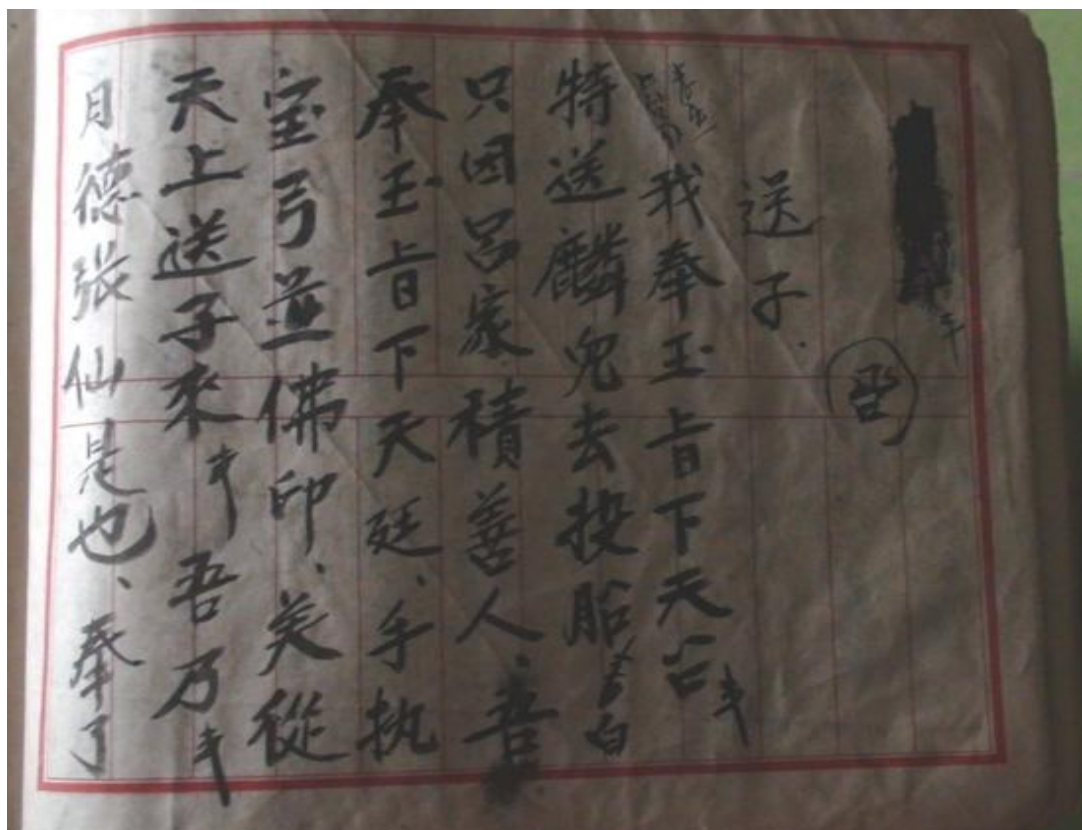 送子
我奉玉旨下天台
特送麟兒去投胎 白
只因吕家積善人、吾
奉玉旨下天廷、手执
宝弓並佛印、美從
天上送子來 吾乃
月德張仙是也、奉了